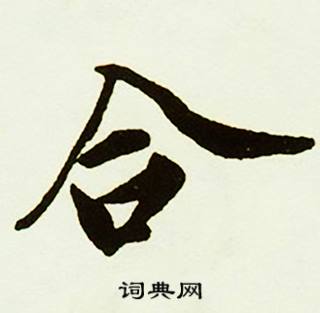 合
词典网